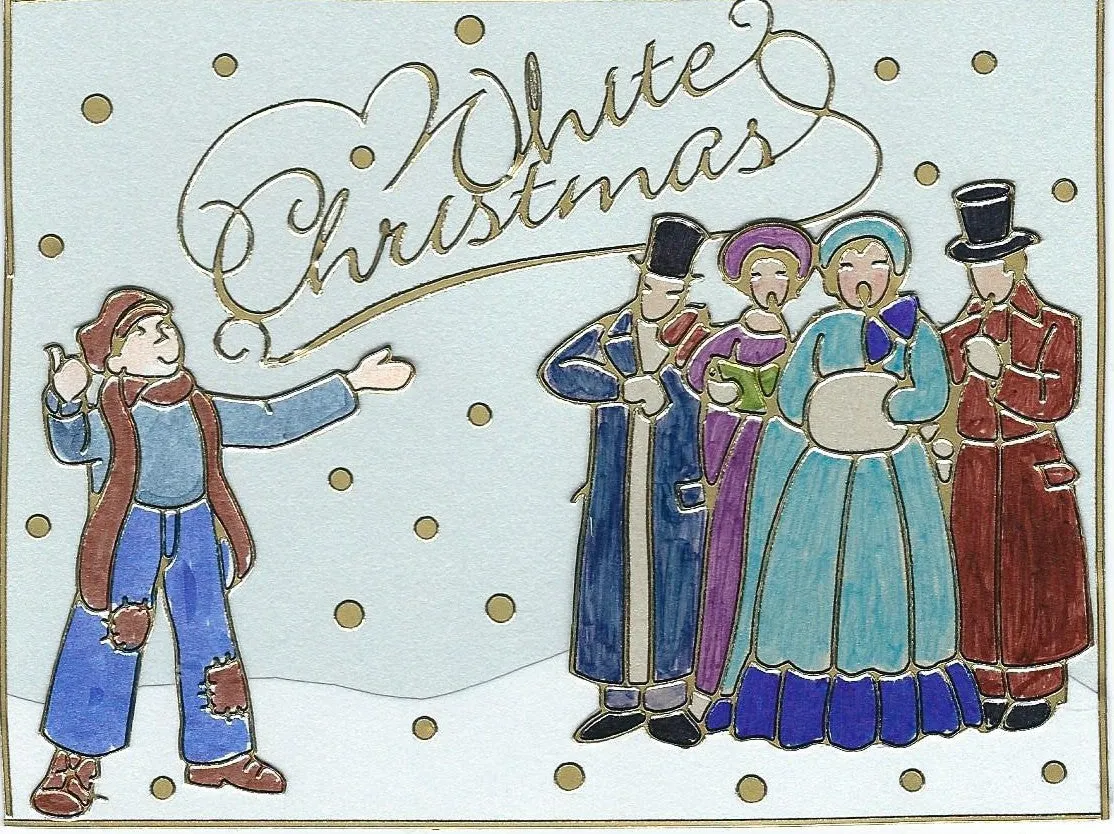 White
Christmas